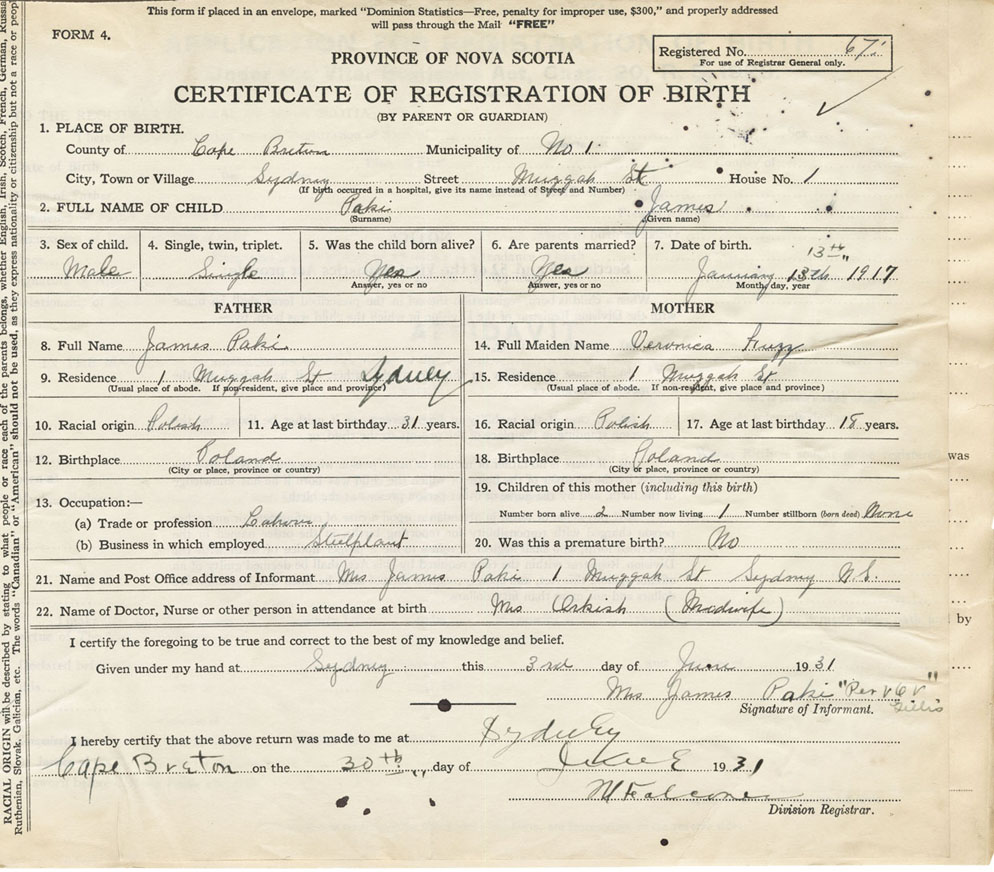 This form if placed in an envelope, marked "Dominion Statistics—Free, penalty for improper use, $300," and properly addressed
will pass through the Mail "FREE"
FORM 4.
Registered No. 67
For use of Registrar General only.
PROVINCE OF NOVA SCOTIA
CERTIFICATE OF REGISTRATION OF BIRTH
(BY PARENT OR GUARDIAN)
1. PLACE OF BIRTH.
County of Cape Breton Municipality of No 1
City, Town or Village Sydney Street Muggah St House No. 1
(If birth occurred in a hospital, give its name instead of Street and Number)
2. FULL NAME OF CHILD Paki James
(Surname) (Given name)
3. Sex of child. 4. Single, twin, triplet. 5. Was the child born alive? 6. Are parents married? 7. Date of birth.
13th
Male Single Yes Yes January 13th 1917
Answer, yes or no Answer, yes or no Month, day, year
FATHER MOTHER
8. Full Name James Paki 14. Full Maiden Name Veronica
9. Residence 1 Muggah St Sydney 15. Residence 1 Muggah St
(Usual place of abode. If non-resident, give place and province) (Usual place of abode. If non-resident, give place and province)
10. Racial origin Polish 11. Age at last birthday 31 years. 16. Racial origin Polish 17. Age at last birthday 18 years.
12. Birthplace Poland 18. Birthplace Poland
(City or place, province or country) (City or place, province or country)
13. Occupation:— 19. Children of this mother (including this birth)
(a) Trade or profession Labour Number born alive 2 Number now living 1 Number stillborn (born dead) None
(b) Business in which employed Steelplant 20. Was this a premature birth? No
21. Name and Post Office address of Informant Mrs James Paki 1 Muggah St Sydney N.S.
22. Name of Doctor, Nurse or other person in attendance at birth Mrs Orkish (Midwife)
I certify the foregoing to be true and correct to the best of my knowledge and belief.
Given under my hand at Sydney this 3rd day of June 1931
Mrs James Paki "Per
Signature of Informant. Gillis
I hereby certify that the above return was made to me at Sydney
Cape Breton on the 30th day of June 1931
M Falconer
Division Registrar.
RACIAL ORIGIN will be described by stating to what people or race each of the parents belongs, whether English, Irish, Scotch, French, German, Russia
Ruthenian, Slovak, Galician, etc. The words "Canadian" or "American" should not be used, as they express nationality or citizenship but not a race or peop
was
by